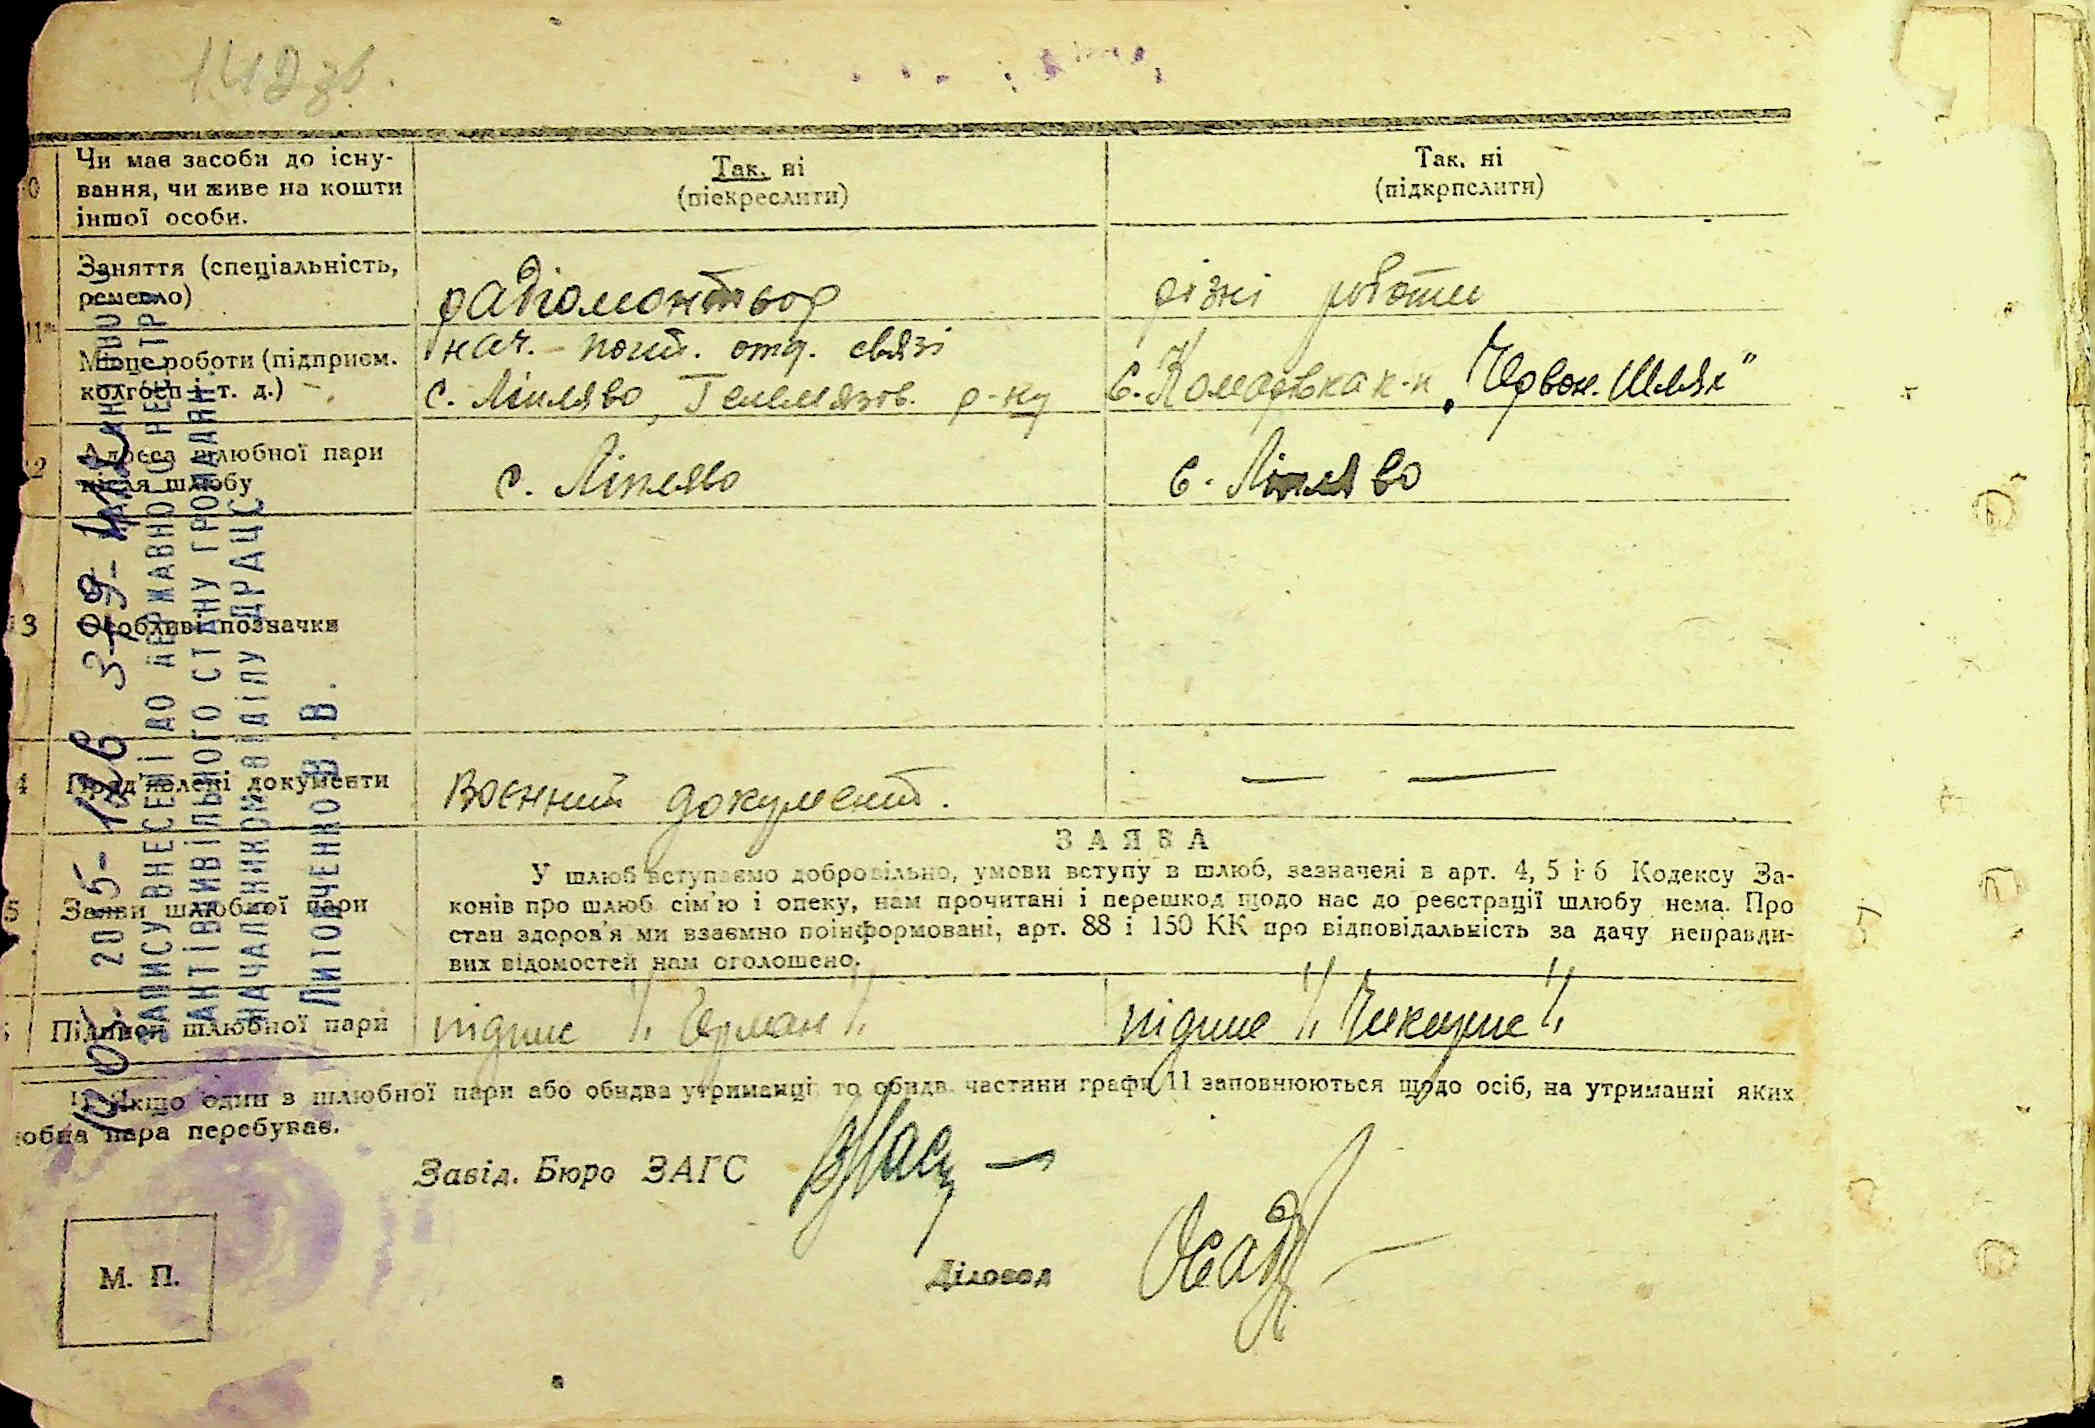 142 зв.
Чи має засоби до існу-
вання, чи живе на кошти
іншої особи.
Так, ні
(піекреслити)
Так, ні
(підкрпслити)
Заняття (спеціальність,
ремесло)
радіомонтьор
різні роботи
11
Місце роботи (підприєм.
колгосп і т. д.)
нач. пошт. отд. связі
с. Ліпляво, Гелемязов. р-ну
с. Комарівка к-п „Червон. Шлях"
2
Адреса шлюбної пари
після шлюбу
с. Ліпляво
с. Ліпляво
13
Особливі позначки
4
Пред'явлені документи
Воєнний документ.
— —
5
Заяви шлюбної пари
ЗАЯВА
У шлюб вступаємо добровільно, умови вступу в шлюб, зазначені в арт. 4, 5 і 6 Кодексу За-
конів про шлюб сім'ю і опеку, нам прочитані і перешкод щодо нас до реєстрації шлюбу нема. Про
стан здоров'я ми взаємно поінформовані, арт. 88 і 150 КК про відповідальність за дачу неправди-
вих відомостей нам оголошено.
Підписи шлюбної пари
підпис // Черман //
підпис // Чикирис //
1) Якщо один з шлюбної пари або обидва утриманці то обидв. частини графи 11 заповнюються щодо осіб, на утриманні яких
юбна пара перебуває.
Завід. Бюро ЗАГС
Діловод
М. П.
2015-126
ЗАПИСУ ВНЕСЕНІ ДО ДЕРЖАВНОГО РЕЄСТРУ
АКТІВ ЦИВІЛЬНОГО СТАНУ ГРОМАДЯН
НАЧАЛЬНИКОМ ВІДІЛУ ДРАЦС
В.В.